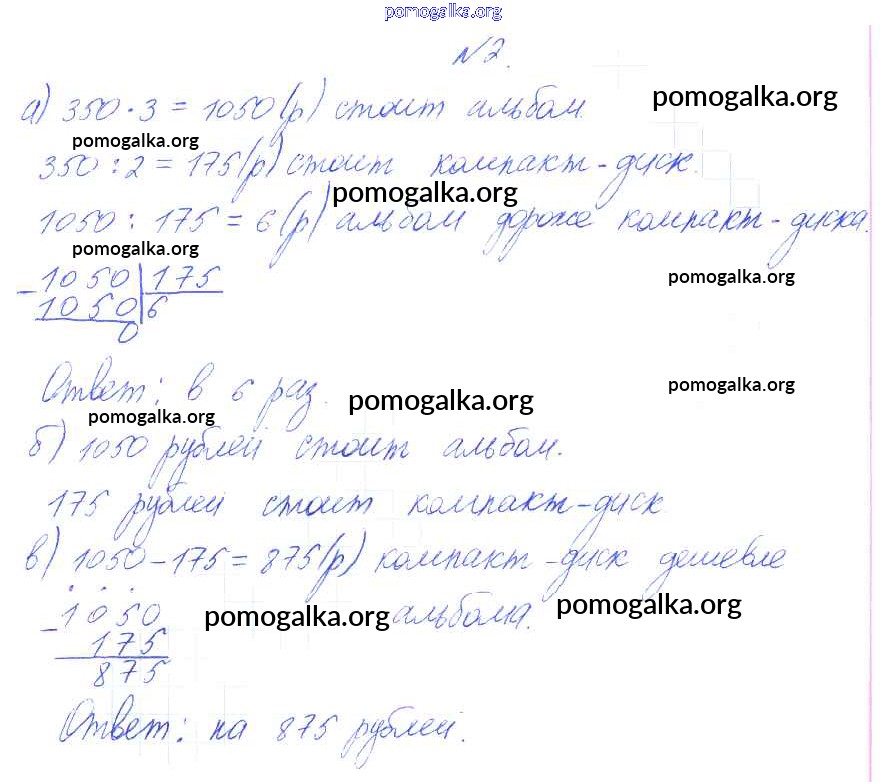 pomogalka.org
№2.
а) 350 · 3 = 1050 (р) стоит альбом.
pomogalka.org
pomogalka.org
350 : 2 = 175 (р) стоит компакт-диск.
pomogalka.org
1050 : 175 = 6 (р) альбом дороже компакт-диска.
pomogalka.org
- 1050 | 175
pomogalka.org
1050 | 6
0
Ответ: в 6 раз.
pomogalka.org
pomogalka.org
pomogalka.org
б) 1050 рублей стоит альбом.
175 рублей стоит компакт-диск
в) 1050 - 175 = 875 (р) компакт-диск дешевле
- 1050 pomogalka.org альбома. pomogalka.org
175
875
Ответ: на 875 рублей.